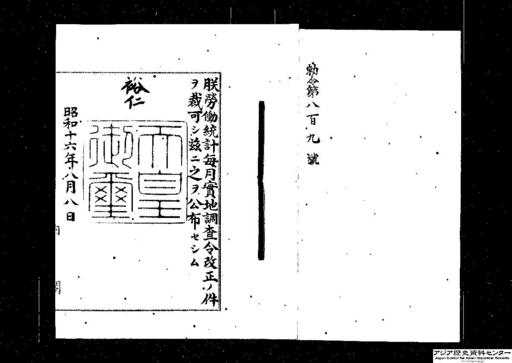 勅令第八百九號
朕勞働統計毎月實地調査令改正ノ件
ヲ裁可シ茲ニ之ヲ公布セシム
裕仁
天皇
御璽
昭和十六年八月八日
内閣
アジア歴史資料センター
Japan Center for Asian Historical Records